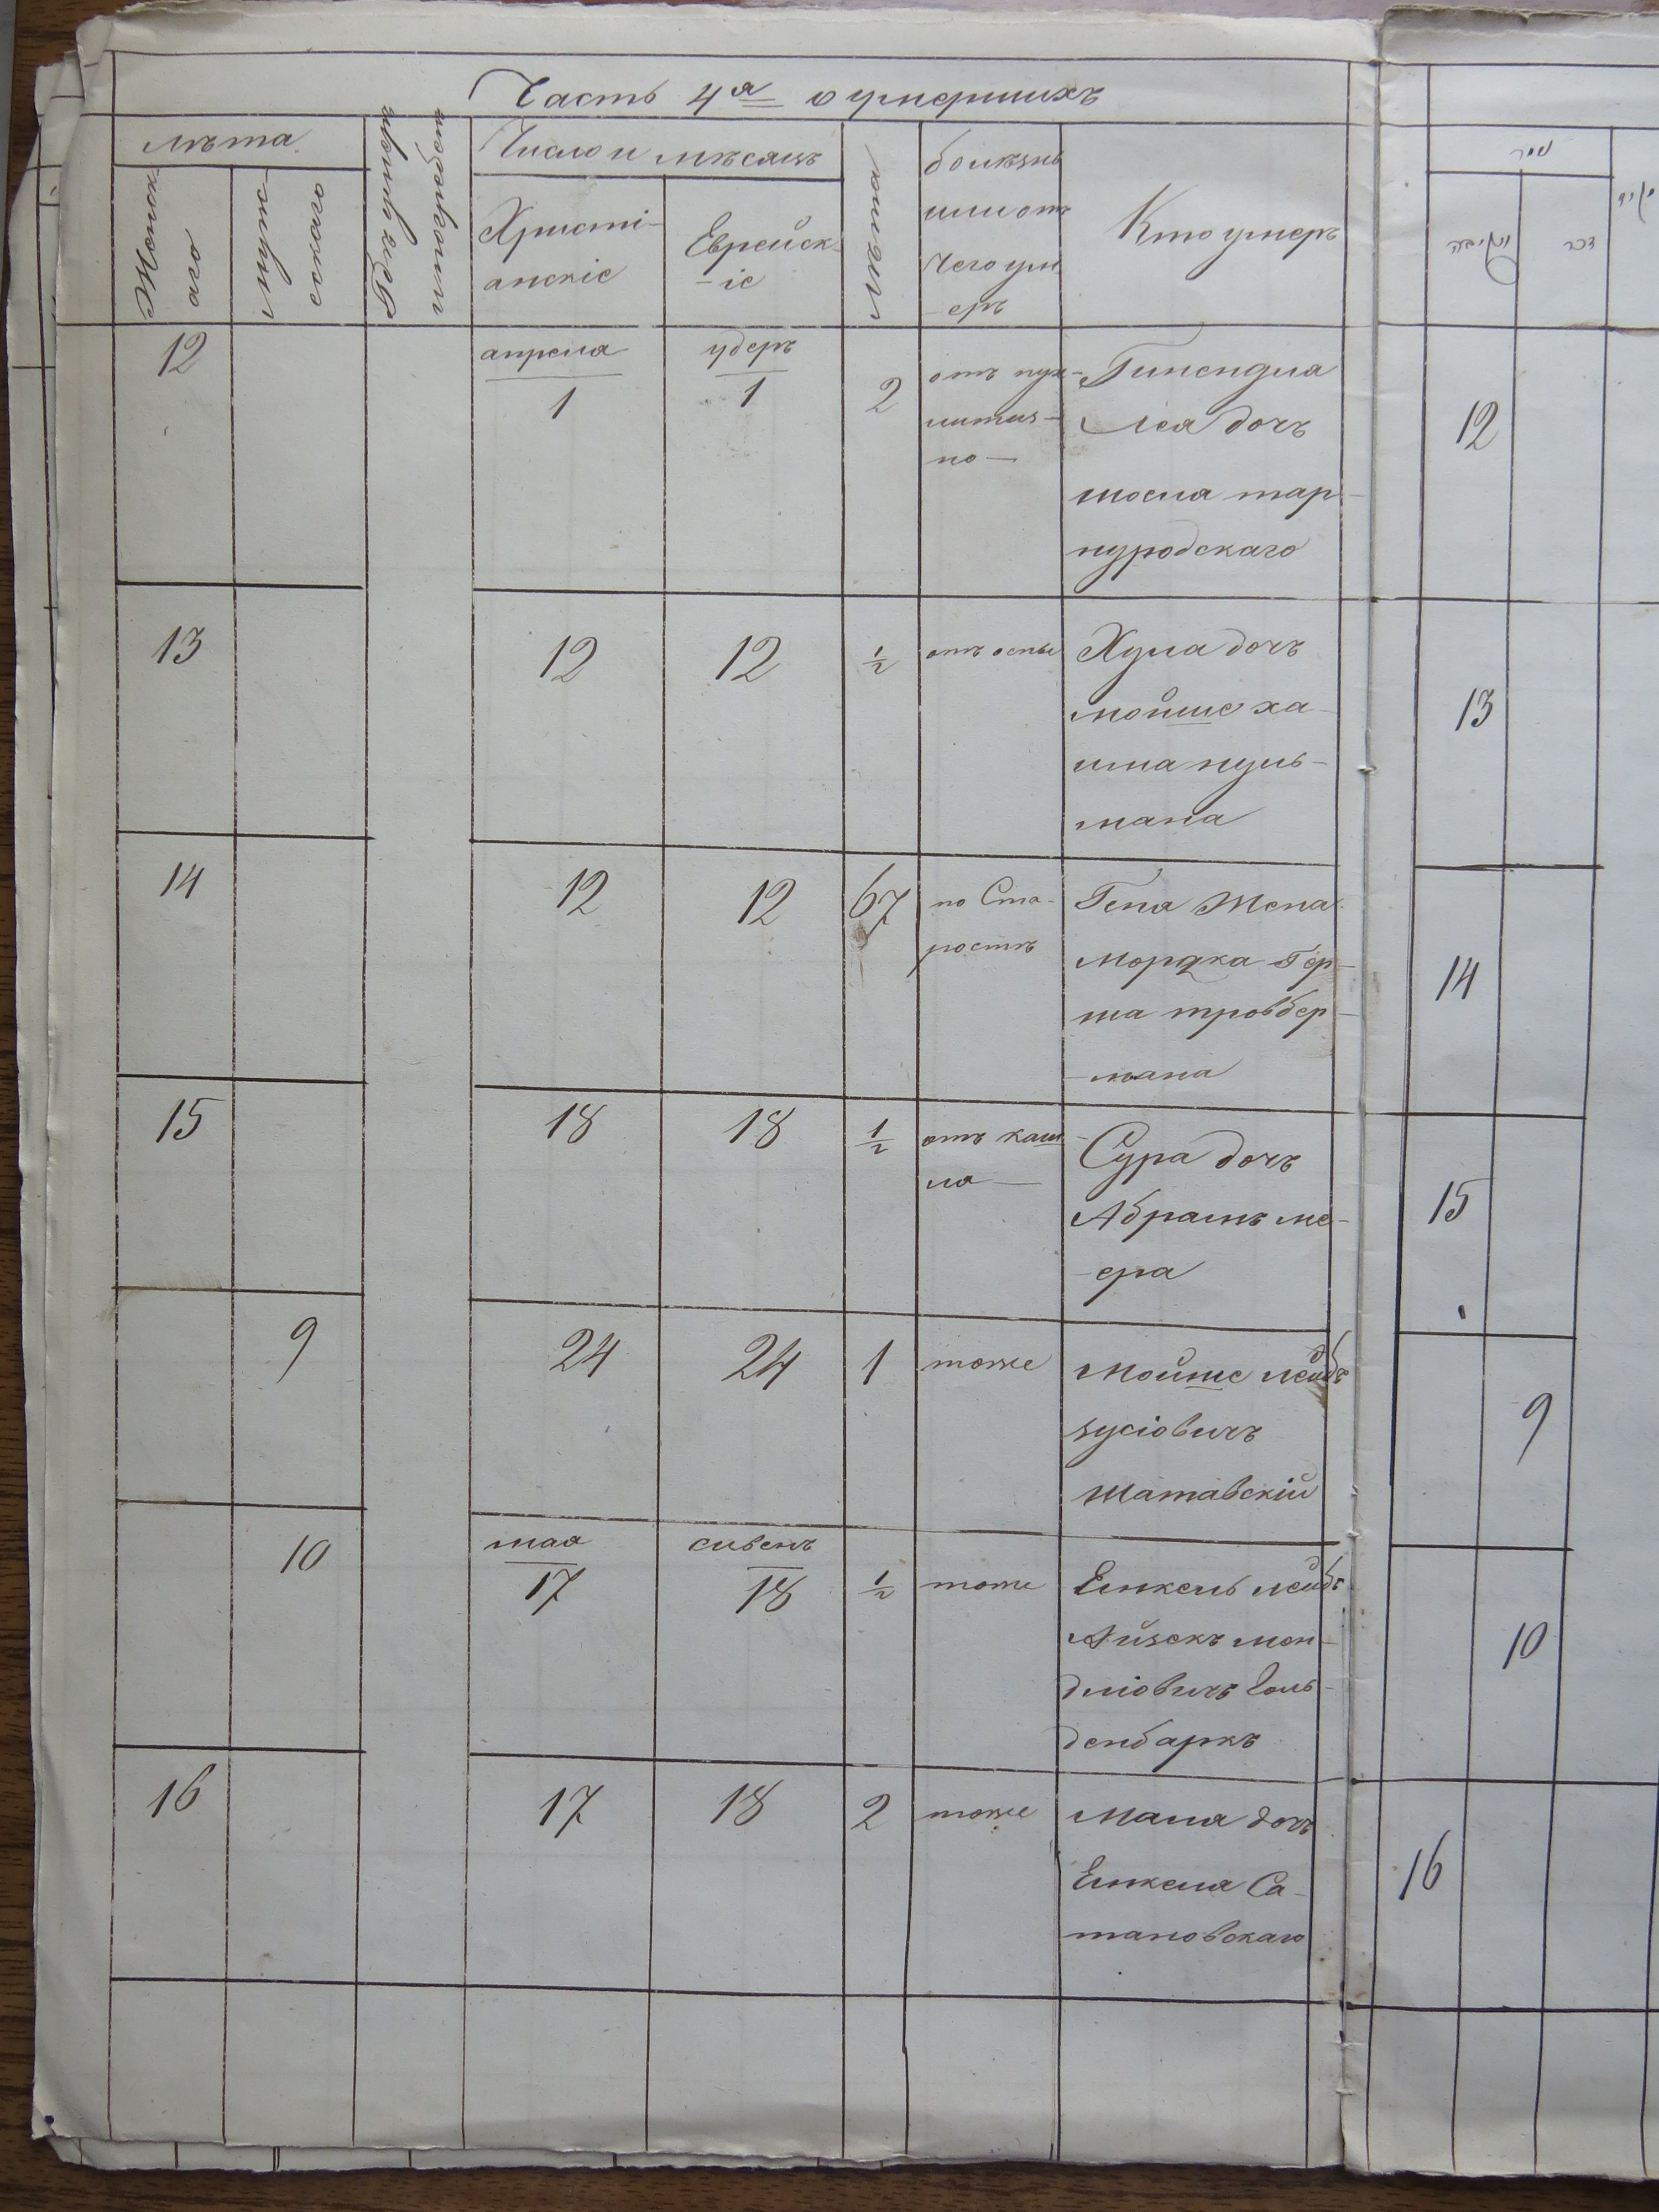 Часть 4я о умершихъ
лѣта
Число и мѣсяцъ
Женск-
ого
мужес-
скаго
Гдѣ умеръ
и погребенъ
Христі-
анскіе
Еврейск-
-іе
Лѣта
болѣзнь
или отъ
чего ум
-еръ
Кто умеръ
12
апреля
1
удеръ
1
2
отъ
-но-
Гинендля
Лея дочь
шосля тар-
нуродскаго
13
12
12
1/2
отъ оспы
Хула дочь
мойше ха-
има пуль-
мана
14
12
12
67
по Ста-
рости
Гена Жена
Мордка Гер-
ша тровбер-
-мана
15
18
18
1/2
отъ каш-
ля-
Сура дочь
Абрамъ ме-
-ера
9
24
24
1
тоже
Мойше лейбъ
зусіовичъ
Шатавскій
10
мая
17
сивенъ
18
1/2
тоже
Емкель лейбъ
Айзекъ мен-
дліовичъ Голь-
денбаркъ
16
17
18
2
тоже
Маля дочь
Емкеля Са-
тановскаго
12
13
14
15
9
10
16